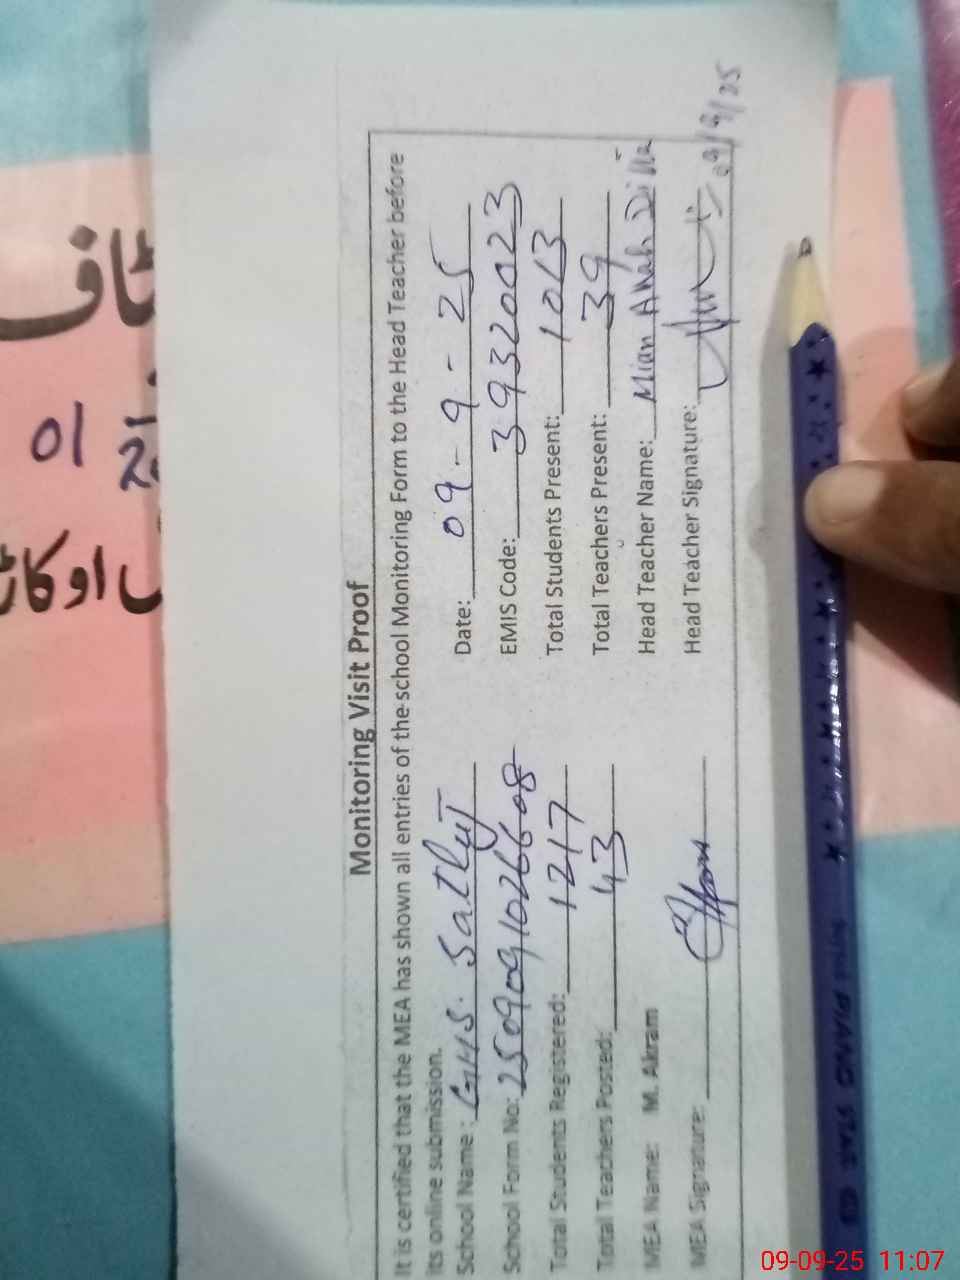 Monitoring Visit Proof
It is certified that the MEA has shown all entries of the school Monitoring Form to the Head Teacher before
its online submission.
School Name: GHS. Satluj Date: 09-9-25
School Form No: 25090910266608 EMIS Code: 39320023
Total Students Registered: 1217 Total Students Present: 1013
Total Teachers Posted: 43 Total Teachers Present: 39
MEA Name: M. Akram Head Teacher Name: Mian Allah Ditta
MEA Signature: Head Teacher Signature: 09/9/25
ٹاف
01
اوکاڑ
PIANO STAR
09-09-25 11:07